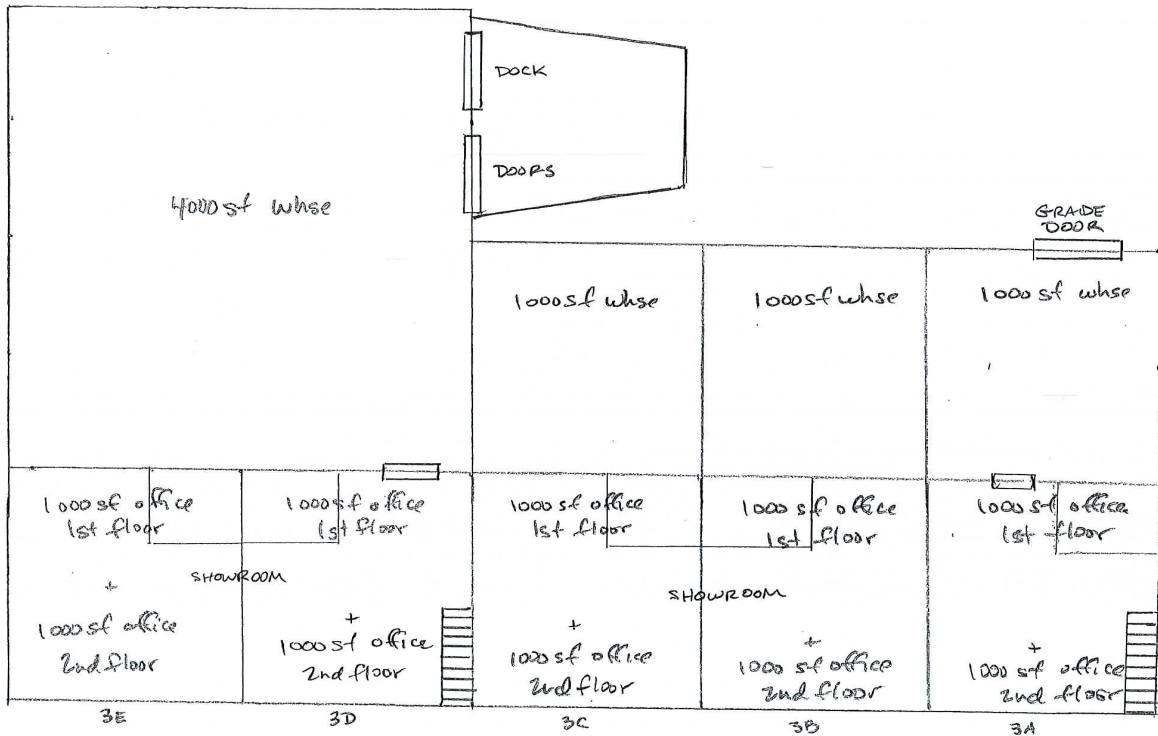 DOCK
DOORS
4000 sf whse
GRADE
DOOR
1000 sf whse
1000 sf whse
1000 sf whse
1000 sf office
1st floor
1000 sf office
1st floor
1000 sf office
1st floor
1000 sf office
1st floor
1000 sf office
1st floor
SHOWROOM
SHOWROOM
+
1000 sf office
2nd floor
+
1000 sf office
2nd floor
+
1000 sf office
2nd floor
+
1000 sf office
2nd floor
+
1000 sf office
2nd floor
3E
3D
3C
3B
3A